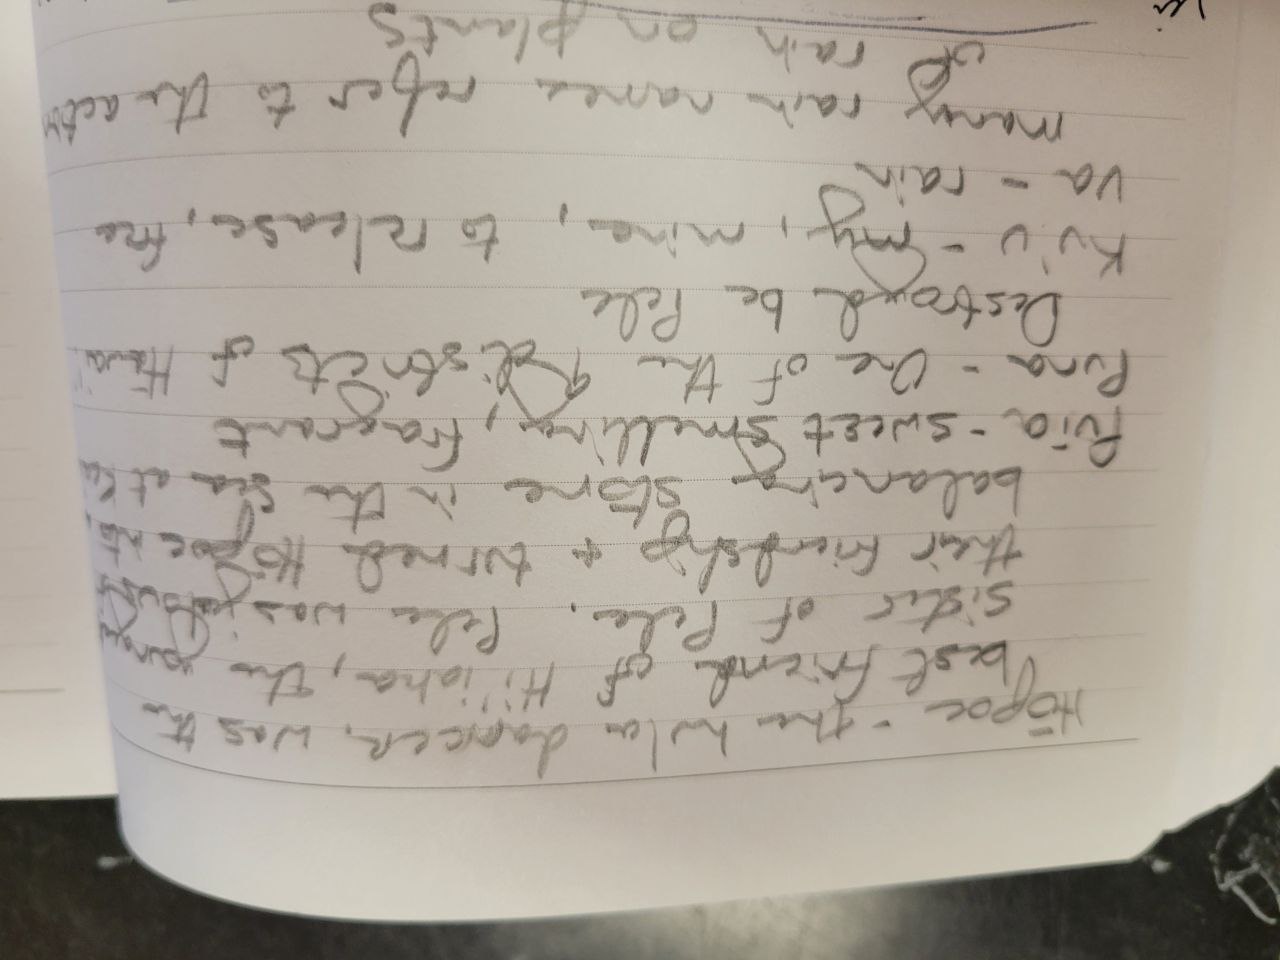 Hōpoe - the hula dancer, was the
best friend of Hi'iaka, the
sister of Pele. Pele was jealous of
their friendship + turned Hōpoe into
balancing stone in the sea at
Puia - sweet smelling, fragrant
Puna - One of the districts of Hawai'i
Destroyed be Pele
Ku'u - my, mine, to release, free
Ua - rain
many rain names refer to the action
of rain on plants